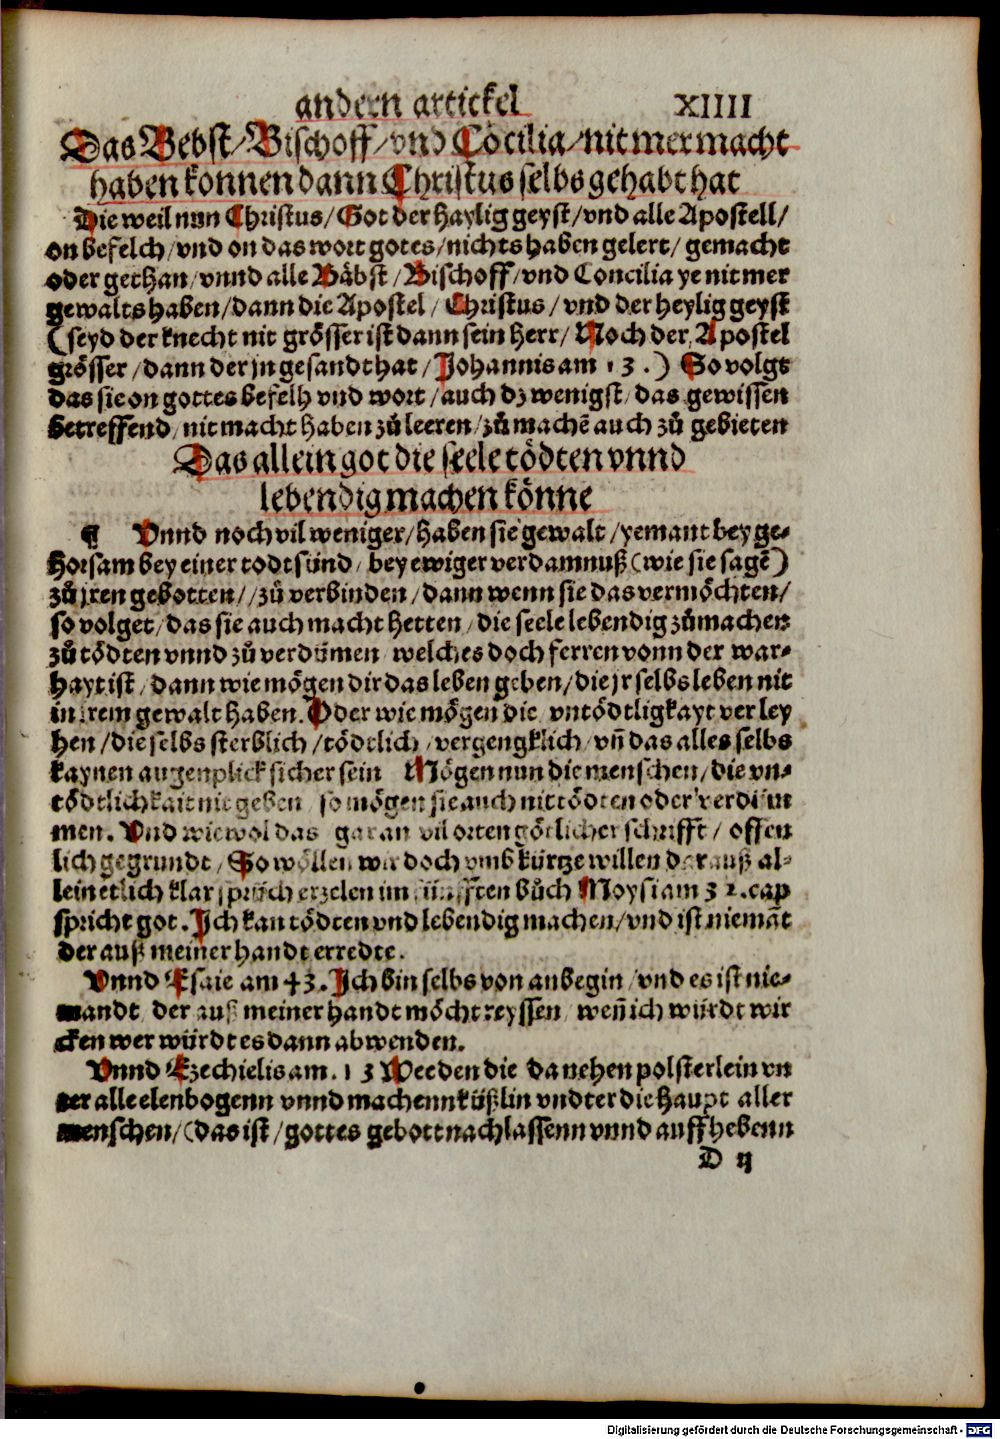 andern artickel XIIII
Das Bebst/Bischoff/vnd Cōcilia/nit mer macht
haben konnen dann Christus selbs gehabt hat
Die weil nun Christus/Got der haylig geyst/vnd alle Apostell/
on befelch/vnd on das wort gotes/nichts haben gelert/ gemacht
oder gethan/vnnd alle Bäbst/Bischoff/vnd Concilia ye nit mer
gewalts haben/dann die Apostel/ Christus/ vnd der heylig geyst
(seyd der knecht nit grösser ist dann sein herr/ Noch der Apostel
grösser/dann der jn gesandt hat/Johannis am 13.) So volgt
das sie on gottes befelh vnd wort/auch dz wenigst/das gewissen
betreffend/nit macht haben zů leeren/zů machē auch zů gebieten
Das allein got die seele tödten vnnd
lebendig machen könne
¶ Vnnd noch vil weniger/haben sie gewalt/yemant bey ge-
horsam bey einer todtsünd/bey ewiger verdamnuß(wie sie sagē)
zů jren gebotten//zů verbinden/dann wenn sie das vermöchten/
so volget/das sie auch macht hetten/die seele lebendig zůmachen
zů tödten vnnd zů verdūmen welches doch ferren vonn der war-
hayt ist/dann wie mögen dir das leben geben/die jr selbs leben nit
in jrem gewalt haben. Oder wie mögen die vntödtligkayt verley
hen/die selbs sterblich/tödtlich/vergengklich/vn̄ das alles selbs
kaynen augenplick sicher sein Mögen nun die menschen/die vn-
tödtlichkait nit geben/so mögen sie auch nit tödten oder verdūm
men. Vnd wiewol das gar an vil orten götlicher schrifft/ offen
lich gegrundt/So wöllen wir doch vmb kürtze willen darauß al-
lein etlich klar sprüch erzelen im fünfften bůch Moysi am 32.cap
spricht got. Ich kan tödten vnd lebendig machen/vnd ist niemāt
der auß meiner handt erredte.
Vnnd Esaie am 43. Ich bin selbs von anbegin/vnd es ist nie-
mandt der auß meiner handt möcht reyssen/wen̄ ich würdt wir
cken wer würdt es dann abwenden.
Vnnd Ezechielis am. 13 Wee den die da nehen polsterlein vn
ter alle elenbogenn vnnd machenn küßlin vndter die haupt aller
menschen/(das ist/gottes gebott nachlassenn vnnd auffhebenn
D ij
Digitalisierung gefördert durch die Deutsche Forschungsgemeinschaft - DFG